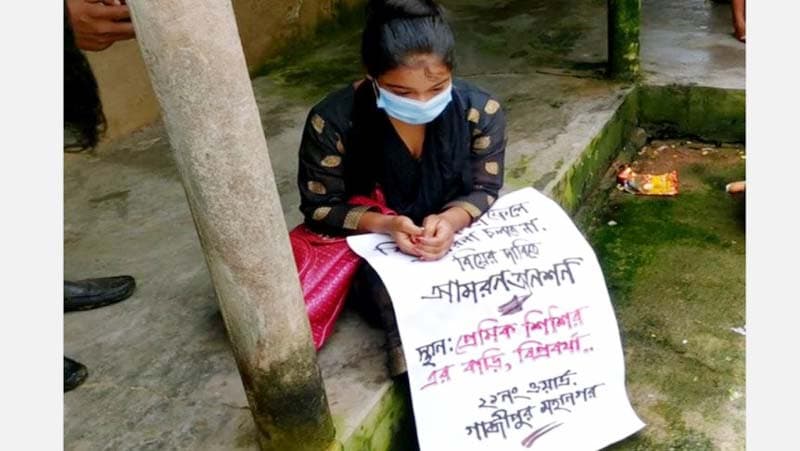 ফেলে
চলবে না.
বিয়ের দাবিতে
আমরন অনশন
স্থান: প্রেমিক শিশির
এর বাড়ি, বিপ্রবর্থা..
২১নং ওয়ার্ড.
গাজীপুর মহানগর